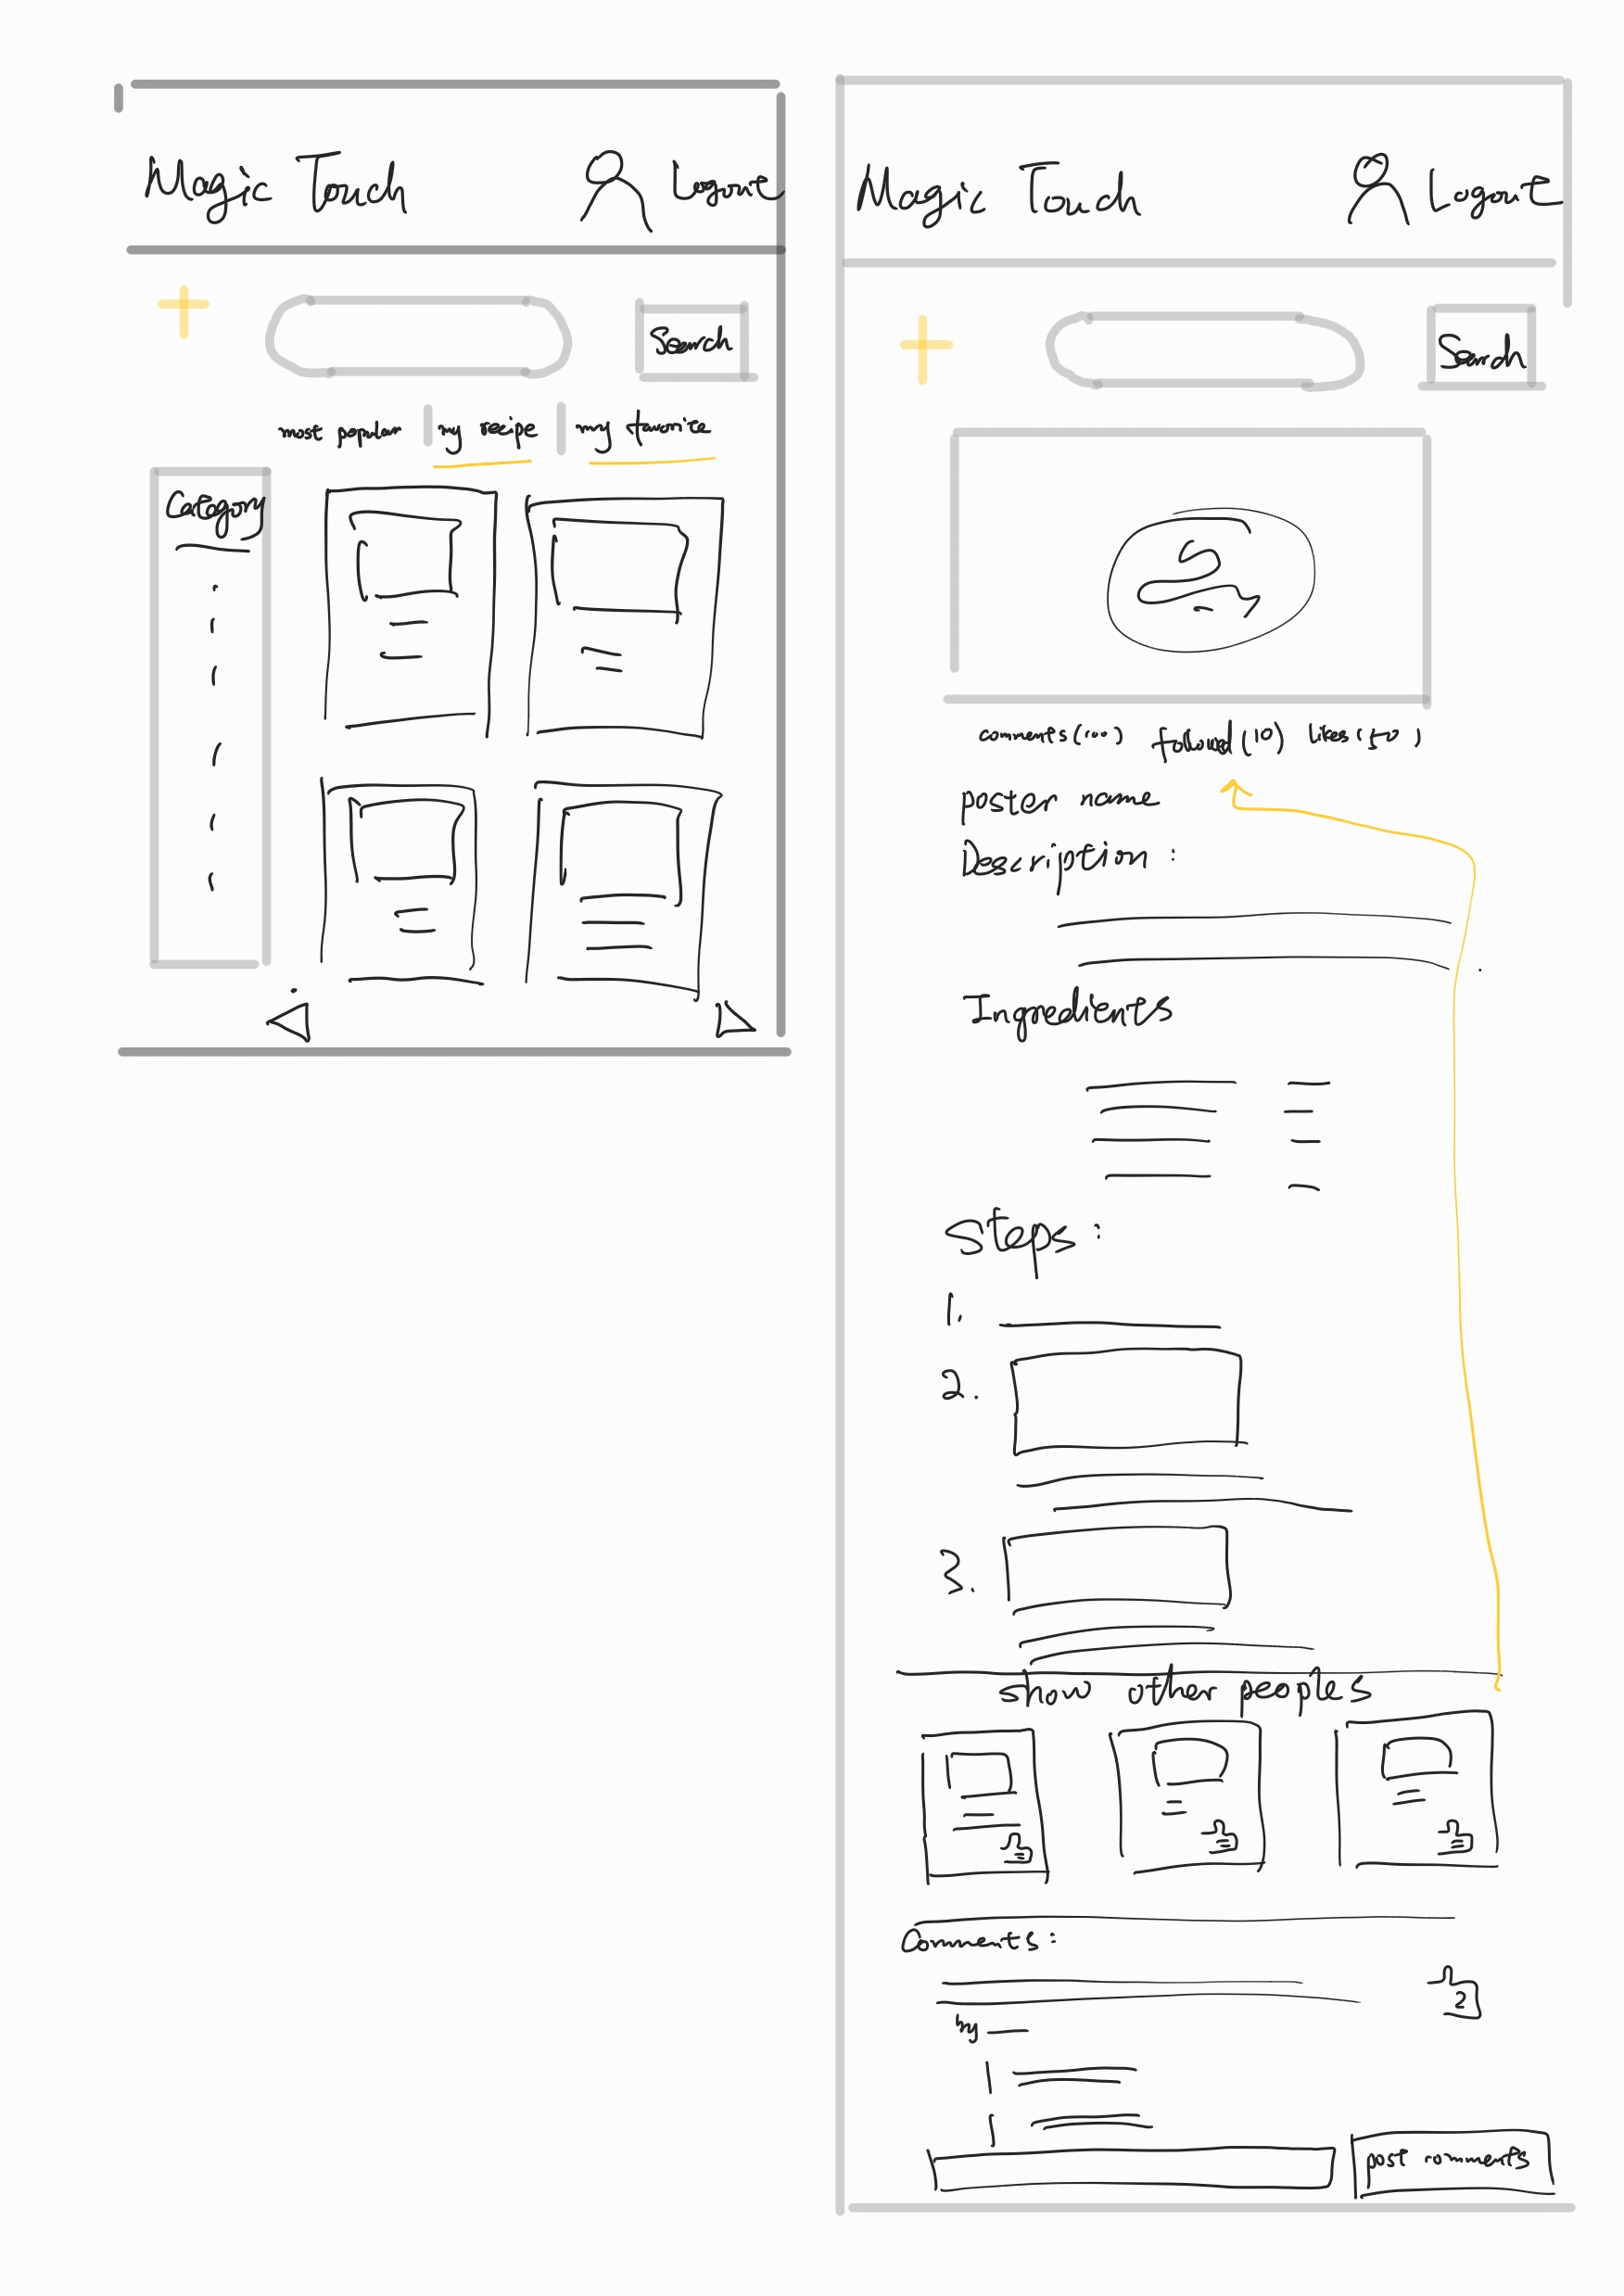 Magic Touch Logout
Search
most popular my recipe my favorite
Category
Magic Touch Logout
Search
comments(100) followed(10) likes(50)
poster name
Description :
Ingredients
Steps :
1.
2.
3.
show other peoples
Comments :
2
by
post comments